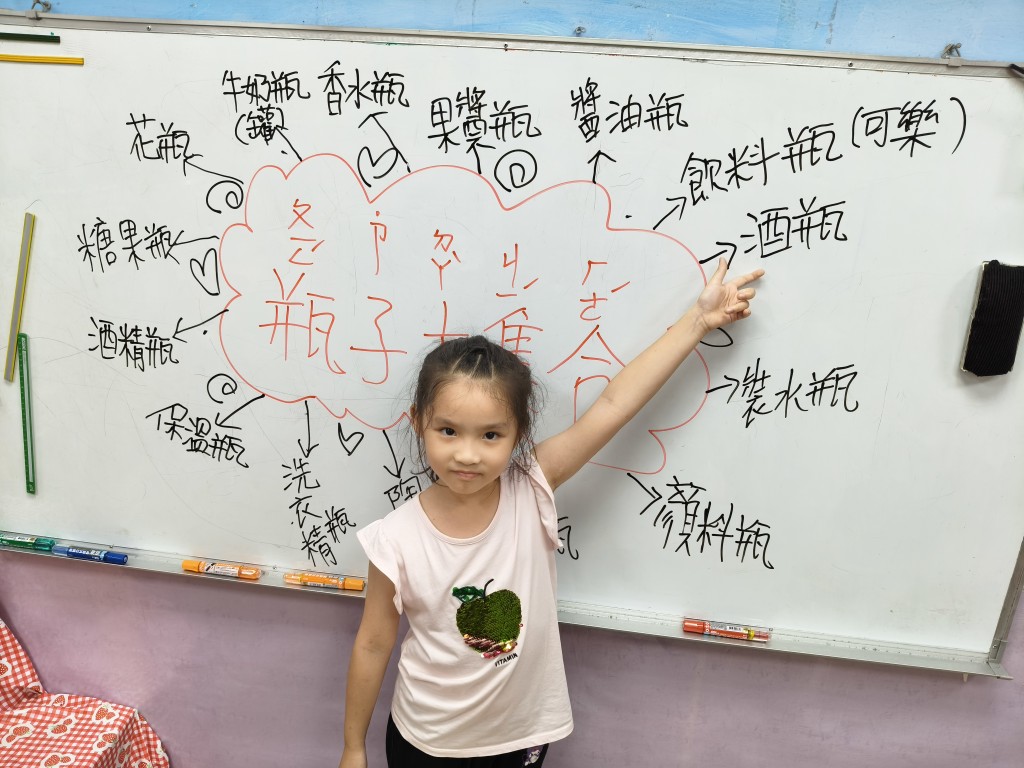 牛奶瓶
(罐)
香水瓶
果醬瓶
醬油瓶
飲料瓶(可樂)
花瓶
酒瓶
糖果瓶
ㄆㄧㄥˊ ㄗ˙ ㄉㄚˋ ㄐㄧˊ ㄏㄜˊ
瓶子大集合
酒精瓶
裝水瓶
保溫瓶
洗衣精瓶
陶
顏料瓶
瓦
VITAMIN